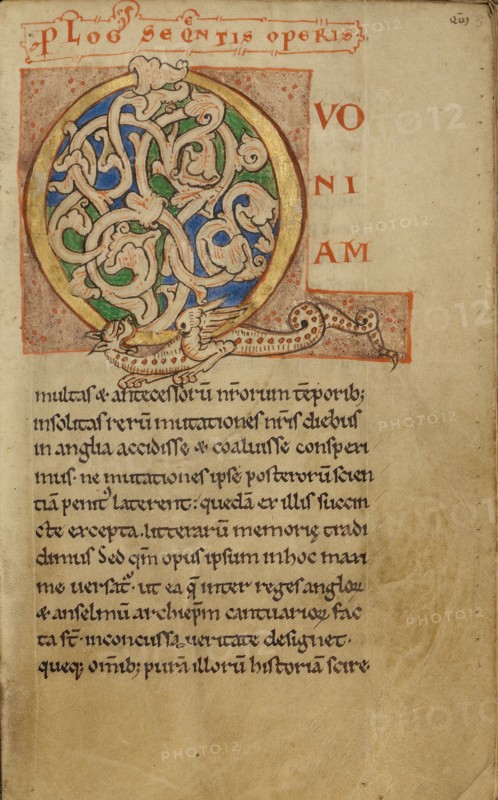 PLOGꝰ SEQENTIS OPERIS
QUO
NI
AM
multas & antecessorū nr̄orum tēporib;
insolitas rerū mutationes nr̄is diebus
in anglia accidisse & coaluisse conspexi
mus. ne mutationes ipsę posterorū scien
tiā penitꝰ laterent: quedā ex illis succin
cte excepta. litterarū memorię tradi
dimus Sed qm̄ opus ipsum in hoc maxi
me uersat̾. ut ea q̄ inter reges angloꝝ
& anselmū archiep̄m cantuarioꝝ fac
ta st̄. inconcussa ueritate designet.
queq; om̄ib; purā illorū historiā scire
PHOTO12